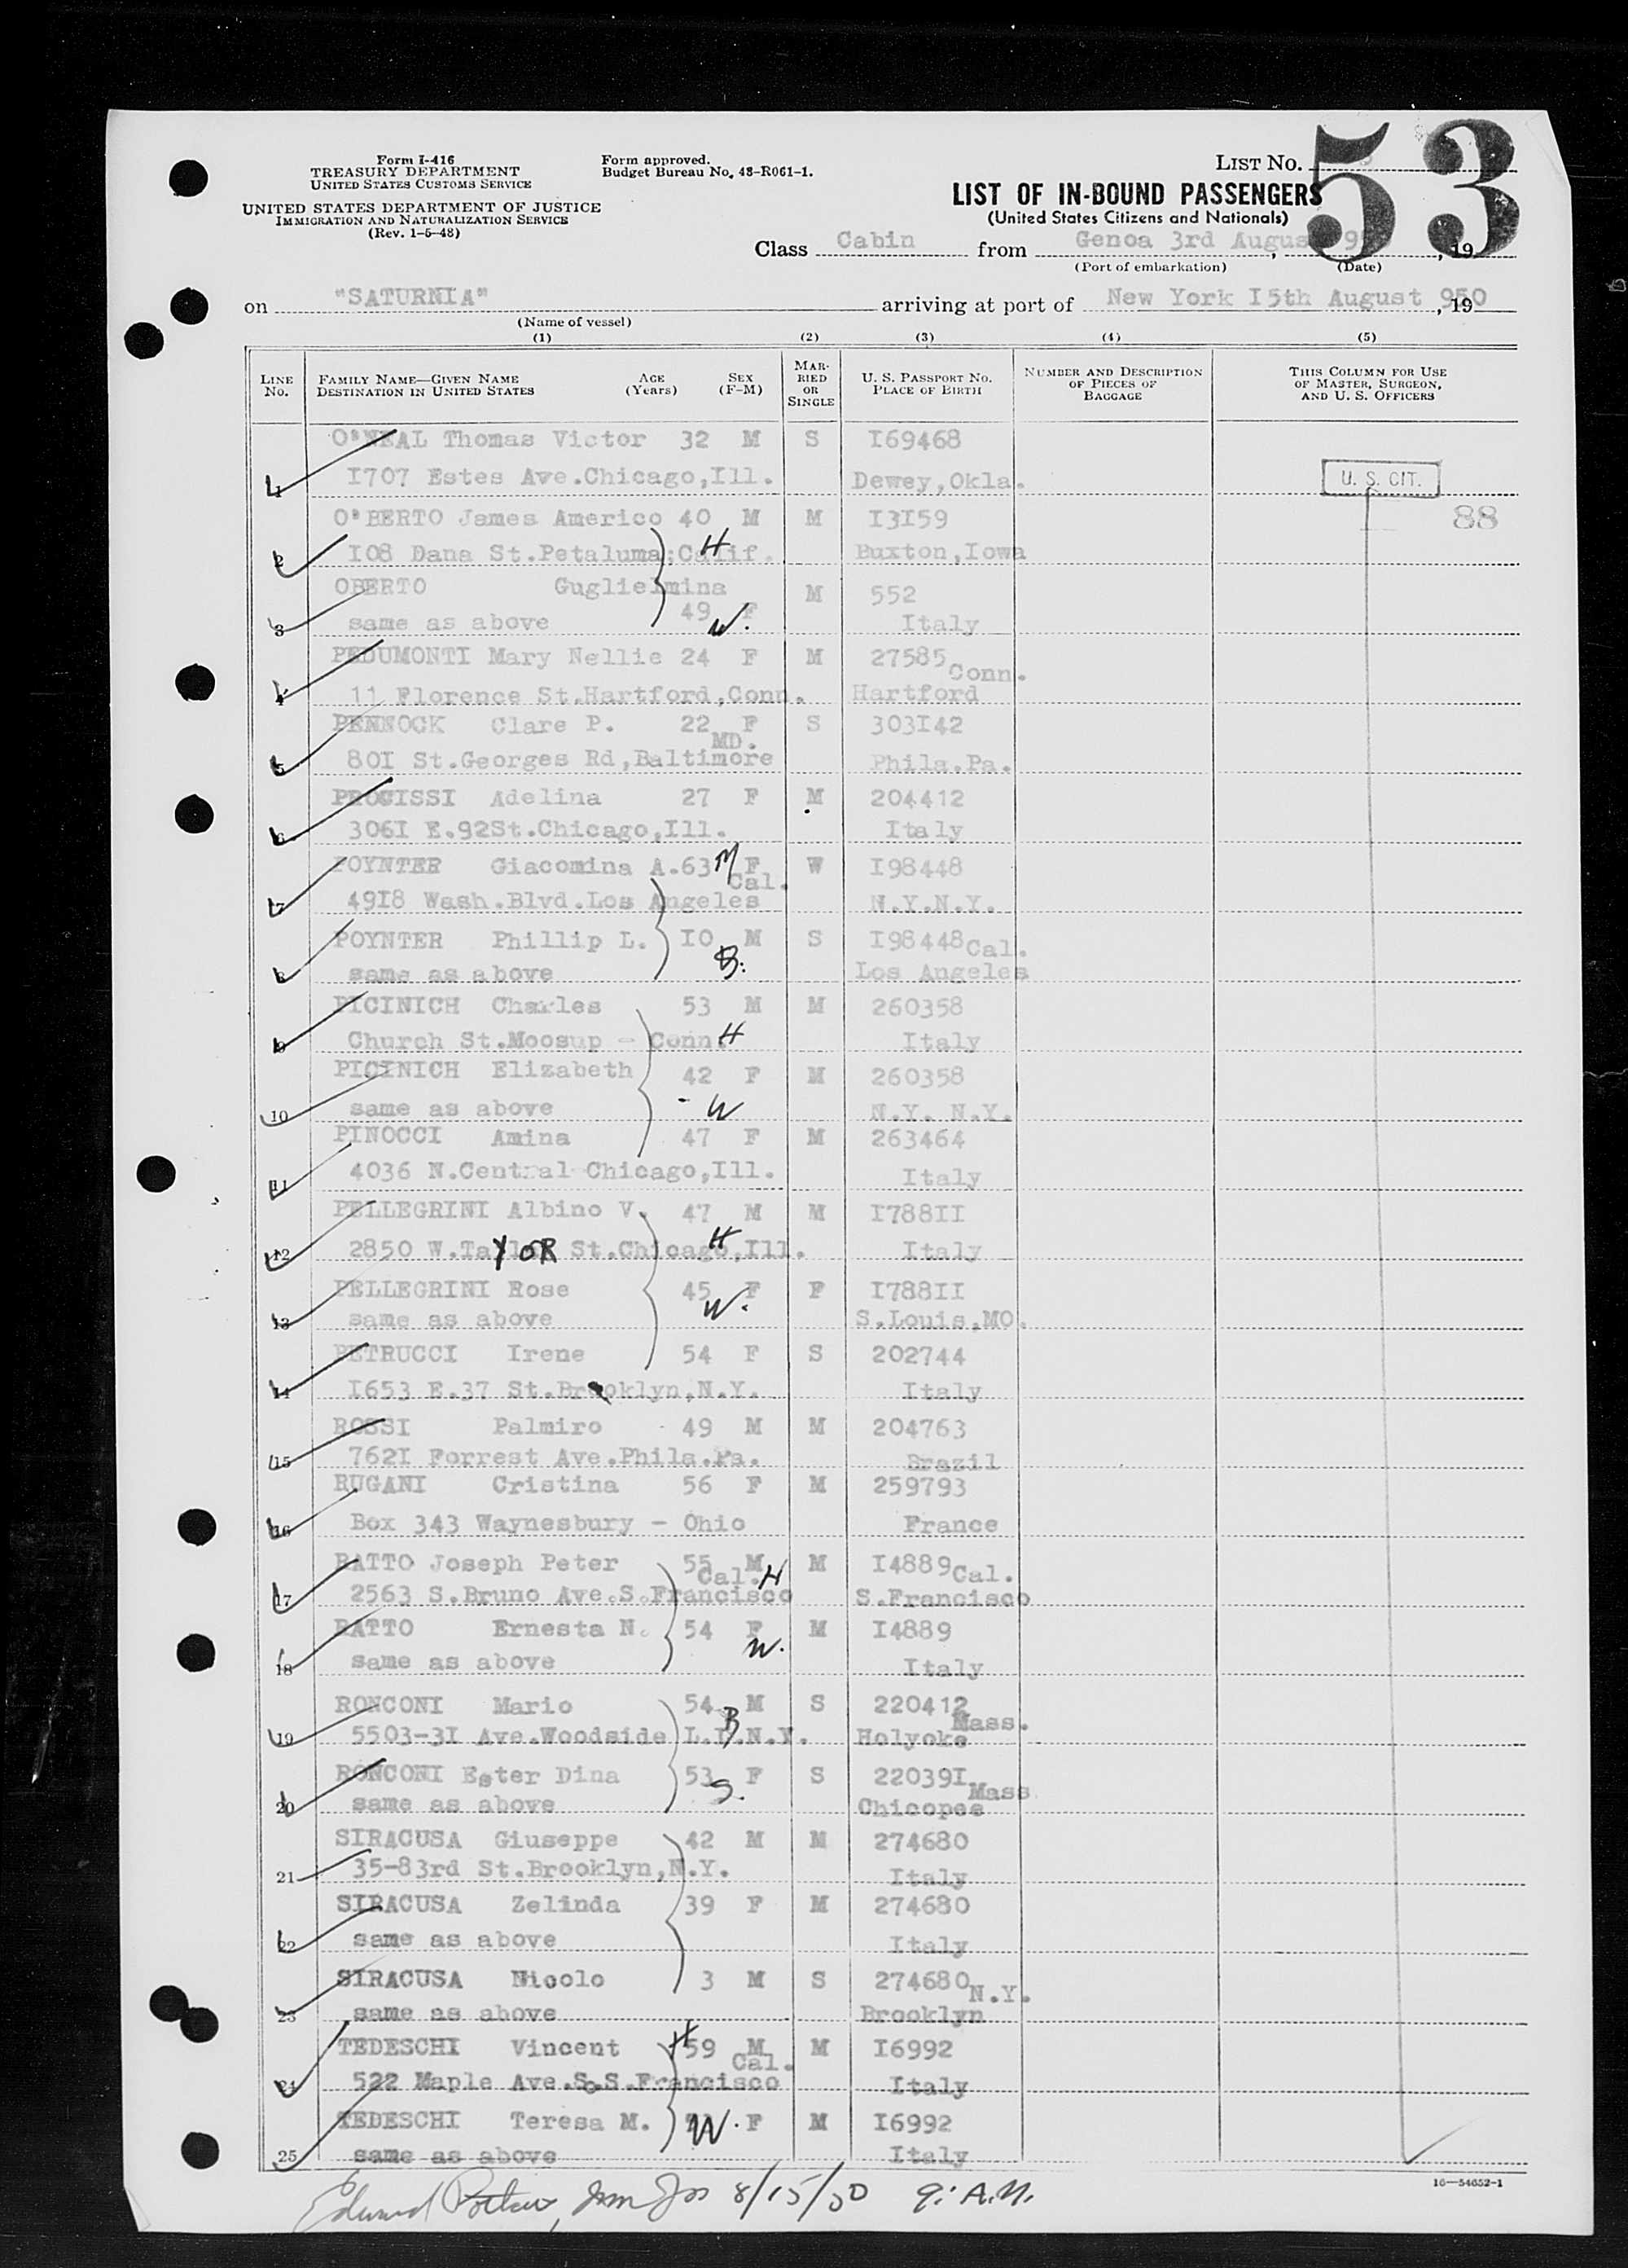 Form I-416
TREASURY DEPARTMENT
UNITED STATES CUSTOMS SERVICE
UNITED STATES DEPARTMENT OF JUSTICE
IMMIGRATION AND NATURALIZATION SERVICE
(Rev. 1-5-48)
Form approved.
Budget Bureau No. 43-R061-1.
LIST NO. 53
LIST OF IN-BOUND PASSENGERS
(United States Citizens and Nationals)
Class Cabin from Genoa 3rd August 19
(Port of embarkation) (Date)
on "SATURNIA" arriving at port of New York I5th August 950, 19
(Name of vessel)
(1) (2) (3) (4) (5)
LINE NO. FAMILY NAME—GIVEN NAME DESTINATION IN UNITED STATES AGE (Years) SEX (F-M) MARRIED OR SINGLE U. S. PASSPORT NO. PLACE OF BIRTH NUMBER AND DESCRIPTION OF PIECES OF BAGGAGE THIS COLUMN FOR USE OF MASTER, SURGEON, AND U. S. OFFICERS
O'NEAL Thomas Victor 32 M S I69468
1 I707 Estes Ave.Chicago,Ill. Dewey,Okla. U. S. CIT.
O'BERTO James Americo 40 M M I3I59 88
2 I08 Dana St.Petaluma;Calif. H Buxton,Iowa
OBERTO Guglielmina M 552
3 same as above 49 F W. Italy
PEDUMONTI Mary Nellie 24 F M 27585 Conn.
4 11 Florence St.Hartford,Conn. Hartford
PENNOCK Clare P. 22 F S 303I42
5 80I St.Georges Rd,Baltimore MD. Phila.Pa.
PROCISSI Adelina 27 F M 204412
6 306I E.92St.Chicago,Ill. Italy
POYNTER Giacomina A.63 M F W I98448
7 49I8 Wash.Blvd.Los Angeles Cal. N.Y.N.Y.
POYNTER Phillip L. I0 M S I98448 Cal.
8 same as above B. Los Angeles
PICINICH Charles 53 M M 260358
9 Church St.Moosup - Conn. H Italy
PICINICH Elizabeth 42 F M 260358
10 same as above W N.Y. N.Y.
PINOCCI Amina 47 F M 263464
11 4036 N.Central Chicago,Ill. Italy
PELLEGRINI Albino V. 47 M M I788II
12 2850 W.TaYlOR St.Chicago,Ill. H Italy
PELLEGRINI Rose 45 F F I788II
13 same as above W. S.Louis,MO.
PETRUCCI Irene 54 F S 202744
14 I653 E.37 St.Brooklyn,N.Y. Italy
ROSSI Palmiro 49 M M 204763
15 762I Forrest Ave.Phila.Pa. Brazil
RUGANI Cristina 56 F M 259793
16 Box 343 Waynesbury - Ohio France
RATTO Joseph Peter 55 M M I4889 Cal.
17 2563 S.Bruno Ave.S.Francisco Cal. H S.Francisco
RATTO Ernesta N. 54 F M I4889
18 same as above W. Italy
RONCONI Mario 54 M S 220412 Mass.
19 5503-3I Ave.Woodside L.I.N.Y. B Holyoke
RONCONI Ester Dina 53 F S 22039I Mass
20 same as above S. Chicopee
SIRACUSA Giuseppe 42 M M 274680
21 35-83rd St.Brooklyn,N.Y. Italy
SIRACUSA Zelinda 39 F M 274680
22 same as above Italy
SIRACUSA Nicolo 3 M S 274680 N.Y.
23 same as above Brooklyn
TEDESCHI Vincent H 59 M M I6992
24 522 Maple Ave.So.S.Francisco Cal. Italy
TEDESCHI Teresa M. W. F M I6992
25 same as above Italy
16—54652-1
Edward 8/15/50 9: A.M.